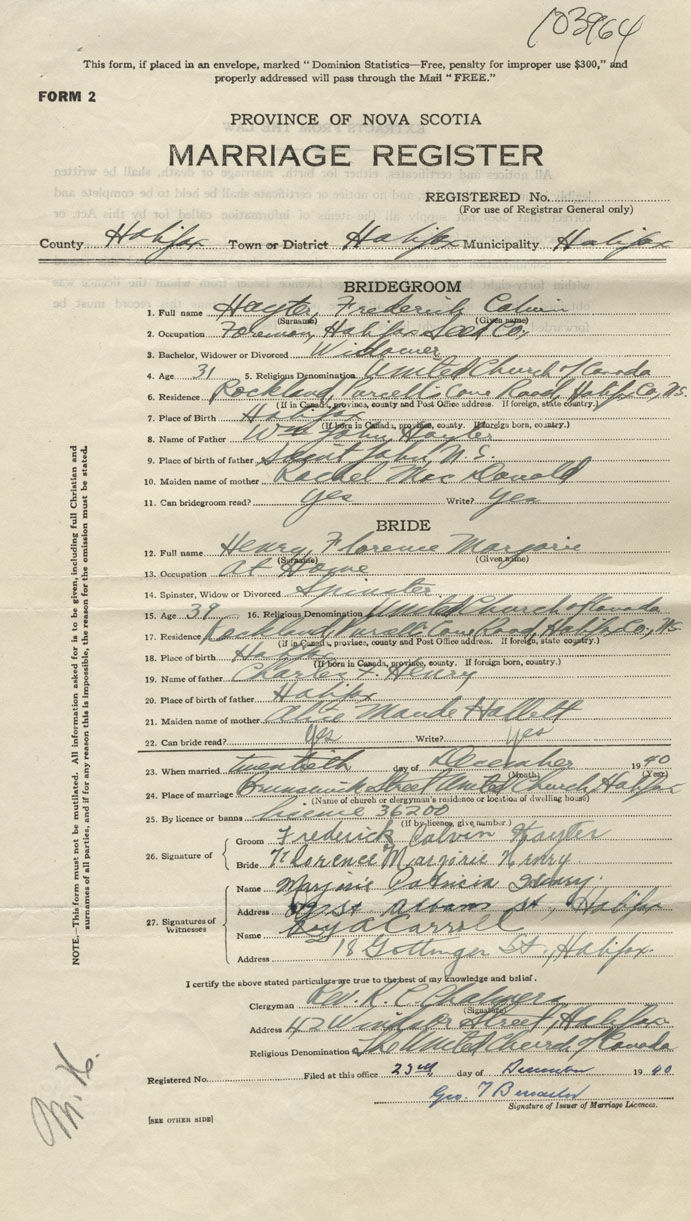 103964
This form, if placed in an envelope, marked "Dominion Statistics—Free, penalty for improper use $300," and
properly addressed will pass through the Mail "FREE."
FORM 2
PROVINCE OF NOVA SCOTIA
MARRIAGE REGISTER
REGISTERED No.
(For use of Registrar General only)
County Halifax Town or District Halifax Municipality Halifax
BRIDEGROOM
1. Full name Hayter, Frederick Calvin
(Surname) (Given name)
2. Occupation Foreman, Halifax Seed Co.
3. Bachelor, Widower or Divorced Widower
4. Age 31 5. Religious Denomination United Church of Canada
6. Residence Rockland, Purcell's Cove Road, Halifax Co., N.S.
(If in Canada, province, county and Post Office address. If foreign, state country.)
7. Place of Birth Halifax
(If born in Canada, province, county. If foreign born, country.)
8. Name of Father Wm John Hayter
9. Place of birth of father Saint John, N.S.
10. Maiden name of mother Rachel MacDonald
11. Can bridegroom read? Yes Write? Yes
BRIDE
12. Full name Henry, Florence Marjorie
(Surname) (Given name)
13. Occupation At Home
14. Spinster, Widow or Divorced Spinster
15. Age 39 16. Religious Denomination United Church of Canada
17. Residence Rockland, Purcell's Cove Road, Halifax Co., N.S.
(If in Canada, province, county and Post Office address. If foreign, state country.)
18. Place of birth Halifax
(If born in Canada, province, county. If foreign born, country.)
19. Name of father Charles F. Henry
20. Place of birth of father Halifax
21. Maiden name of mother Maude Hallett
22. Can bride read? Yes Write? Yes
23. When married twentieth day of December 1940
(Month) (Year)
24. Place of marriage Brunswick Street United Church, Halifax
(Name of church or clergyman's residence or location of dwelling house)
25. By licence or banns licence 36200
(If by licence, give number.)
26. Signature of Groom Frederick Calvin Hayter
Bride Florence Marjorie Henry
27. Signatures of Witnesses
Name Marjorie Patricia Henry
Address St Albans St., Halifax
Name Roy A Carroll
Address 18 Gottingen St, Halifax.
I certify the above stated particulars are true to the best of my knowledge and belief.
Clergyman Rev. K. C. Chalmers
(Signature)
Address 42 Windsor Street Halifax
Religious Denomination The United Church of Canada
Registered No. Filed at this office 23rd day of December 1940
Geo. T
Signature of Issuer of Marriage Licences.
[SEE OTHER SIDE]
NOTE.—This form must not be mutilated. All information asked for is to be given, including full Christian and
surnames of all parties, and if for any reason this is impossible, the reason for the omission must be stated.
M. H.